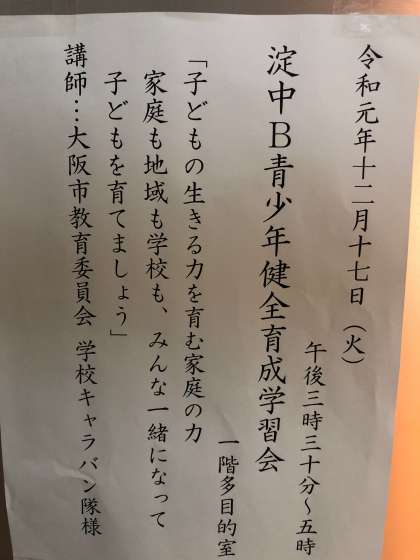 令和元年十二月十七日（火）
午後三時三十分～五時
淀中Ｂ青少年健全育成学習会
一階多目的室
「子どもの生きる力を育む家庭の力
家庭も地域も学校も、みんな一緒になって
子どもを育てましょう」
講師…大阪市教育委員会 学校キャラバン隊様